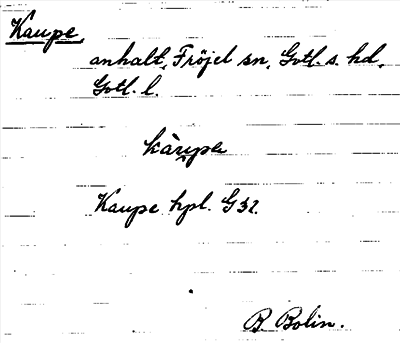 Kaupe,
anhalt, Fröjel sn, Gotl. s. hd,
Gotl. l.
kàu̯pe
Kaupe hpl. G 32.
B Bolin.